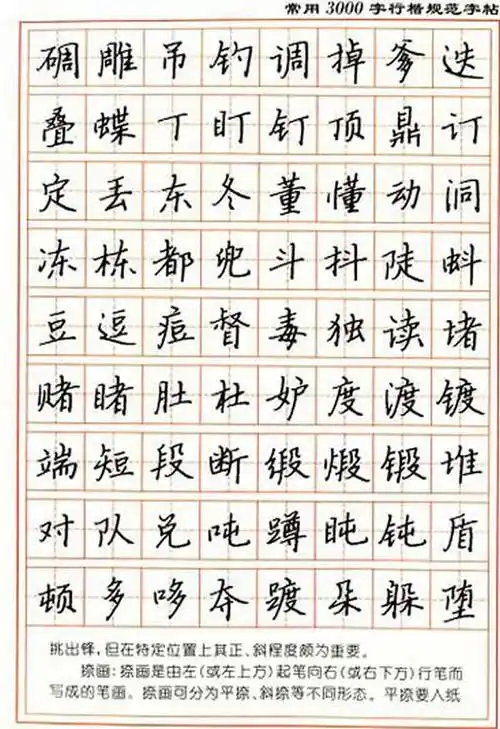 常用3000字行楷规范字帖
碉雕吊钓调掉爹迭
叠蝶丁盯钉顶鼎订
定丢东冬董懂动洞
冻栋都兜斗抖陡蚪
豆逗痘督毒独读堵
赌睹肚杜妒度渡镀
端短段断缎煅锻堆
对队兑吨蹲盹钝盾
顿多哆夺踱朵躲堕
挑出锋,但在特定位置上其正、斜程度颇为重要。
捺画:捺画是由左(或左上方)起笔向右(或右下方)行笔而
写成的笔画。捺画可分为平捺、斜捺等不同形态。平捺要入纸